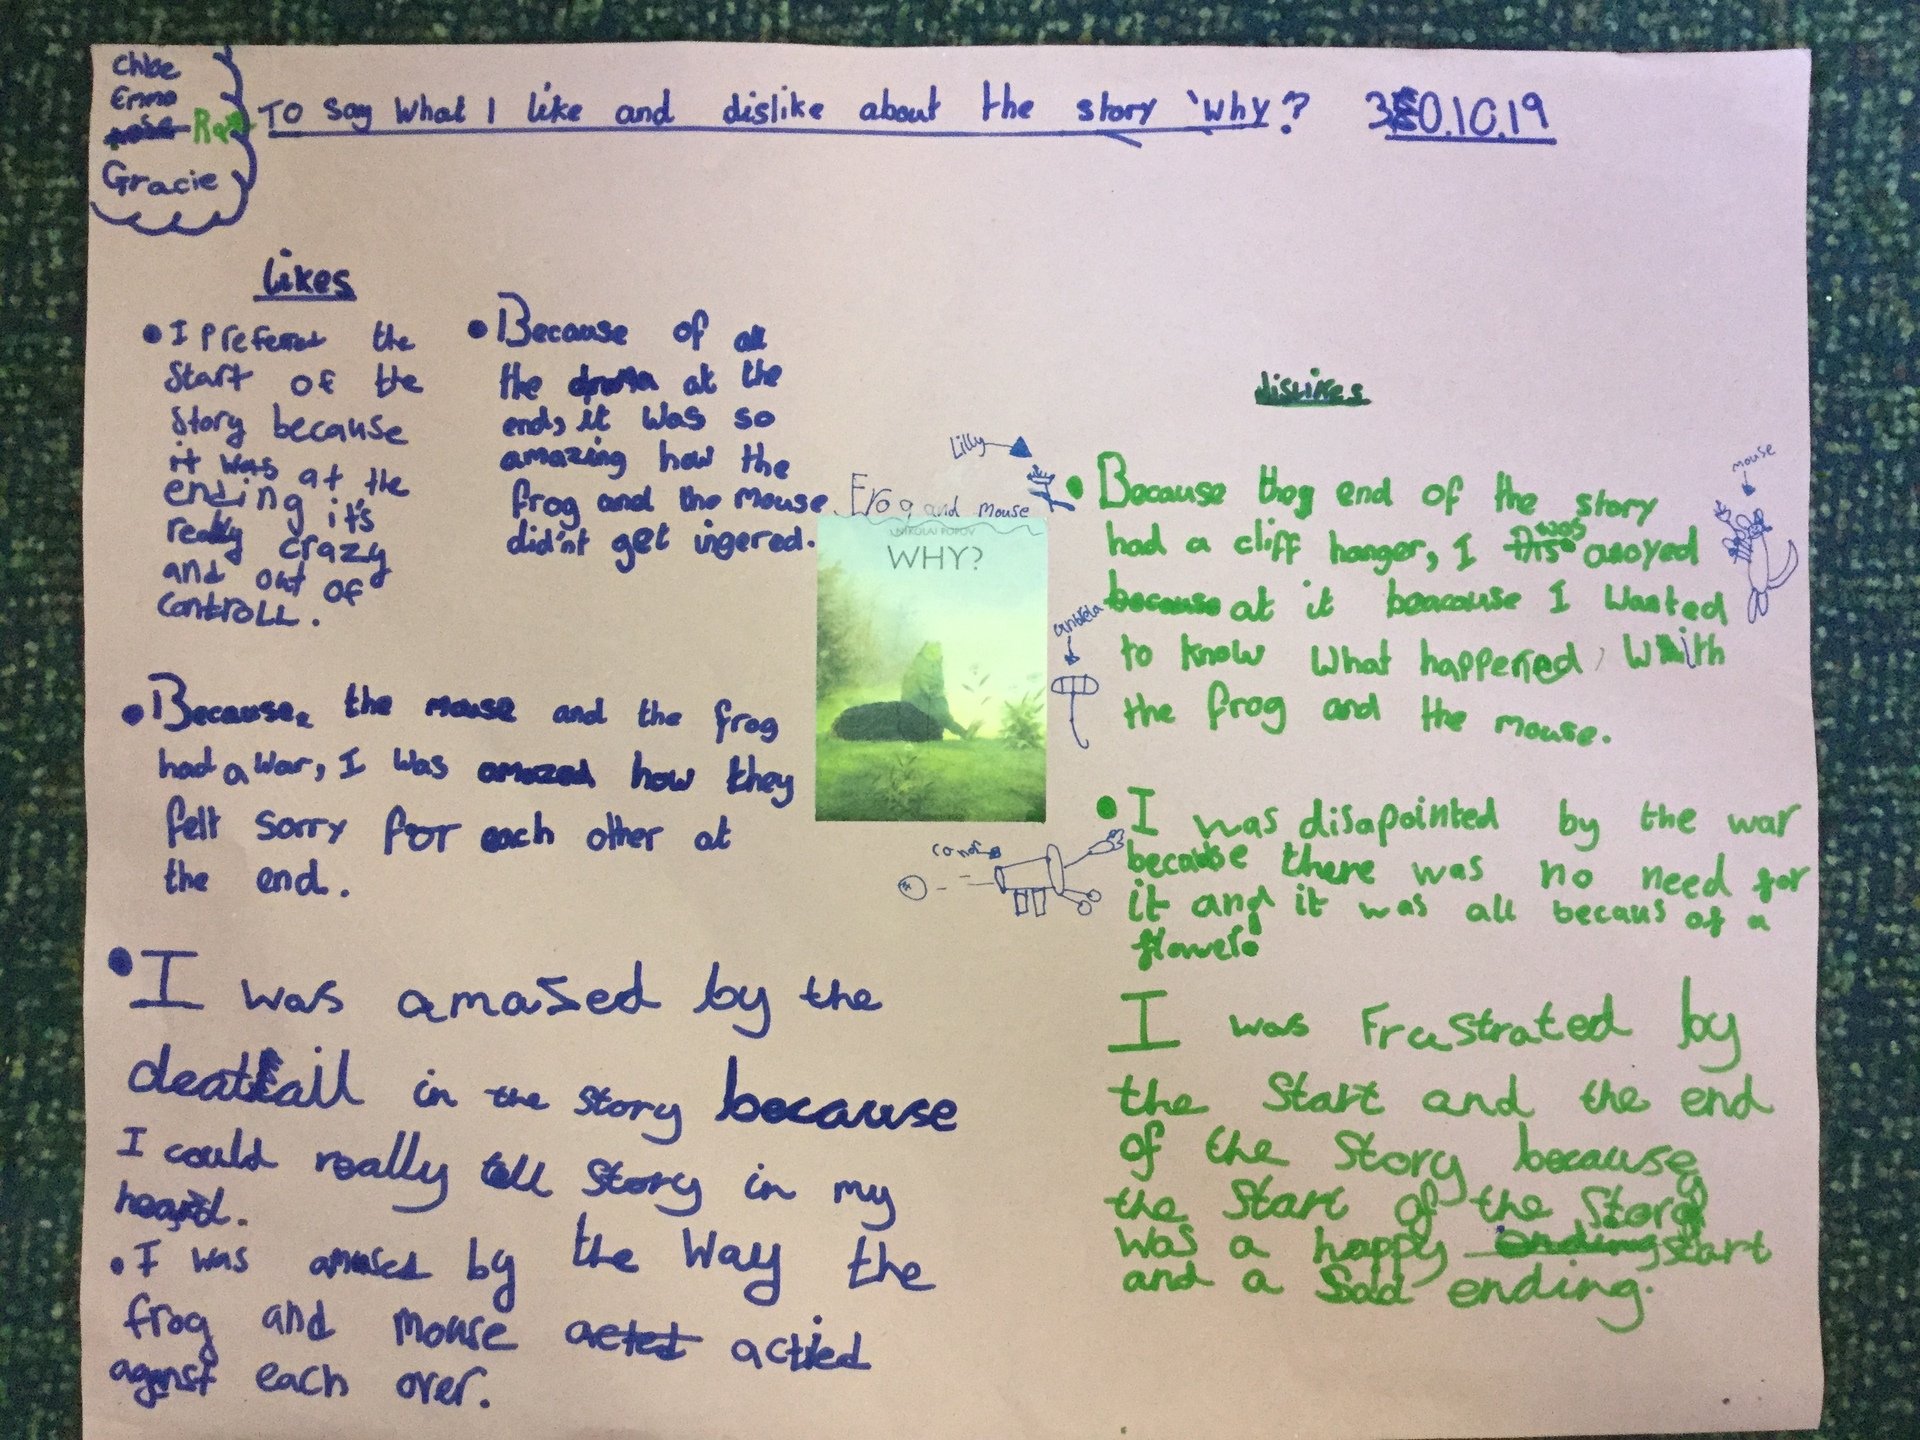 Chloe
Emma
Gracie
To say what I like and dislike about the story 'why? 30.10.19
likes
• I preferred the
start of the
story because
it was at the
ending it's
really crazy
and out of
controll.
• Because of all
the drama at the
end, it was so
amazing how the
frog and the mouse
did'nt get ingered.
• Because, the mouse and the frog
had a war, I was amazed how they
felt sorry for each other at
the end.
• I was amased by the
deatail in the story because
I could really tell story in my
heard.
• I was amused by the way the
frog and mouse acted actied
agenst each over.
Lilly
Frog and mouse
NIKOLAI POPOV
WHY?
mouse
dislikes
• Because the end of the story
had a cliff hanger, I was anoyed
because at it beacause I wanted
to know what happened, with
the frog and the mouse.
• I was disapointed by the war
because there was no need for
it and it was all becaus of a
flower.
I was Frustrated by
the start and the end
of the story because
the start of the story
was a happy ending start
and a sad ending.